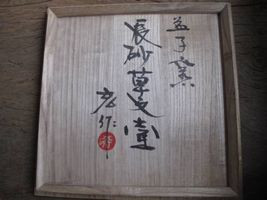 益子窯
辰砂草文壺
作